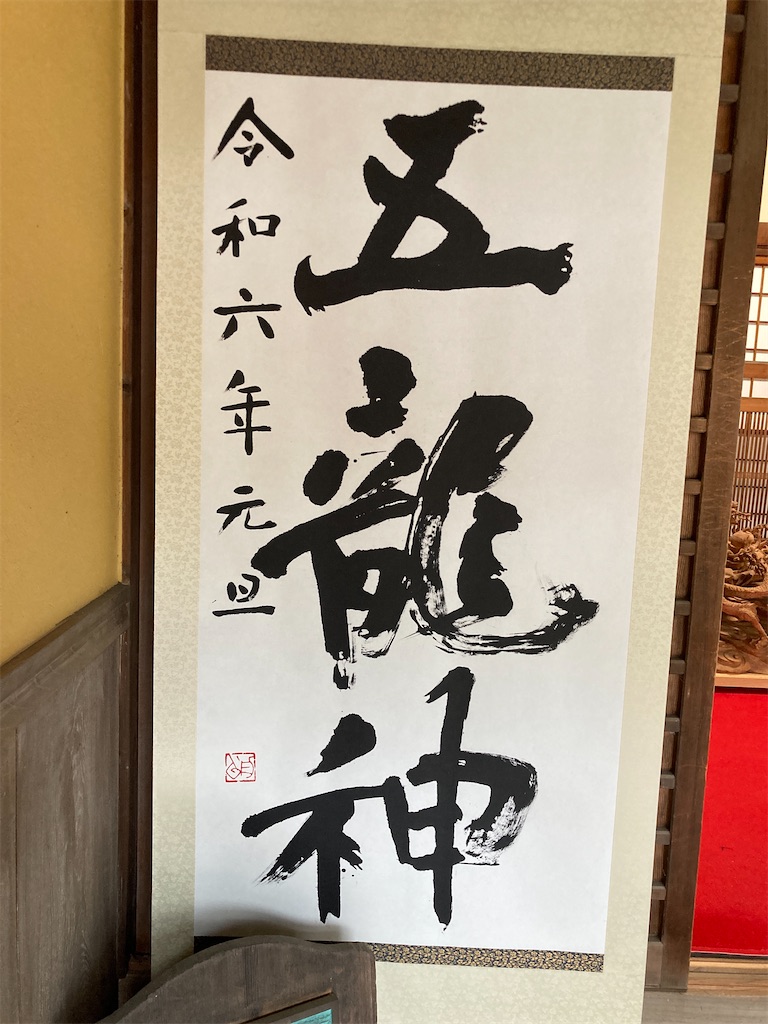 五龍神
令和六年元旦